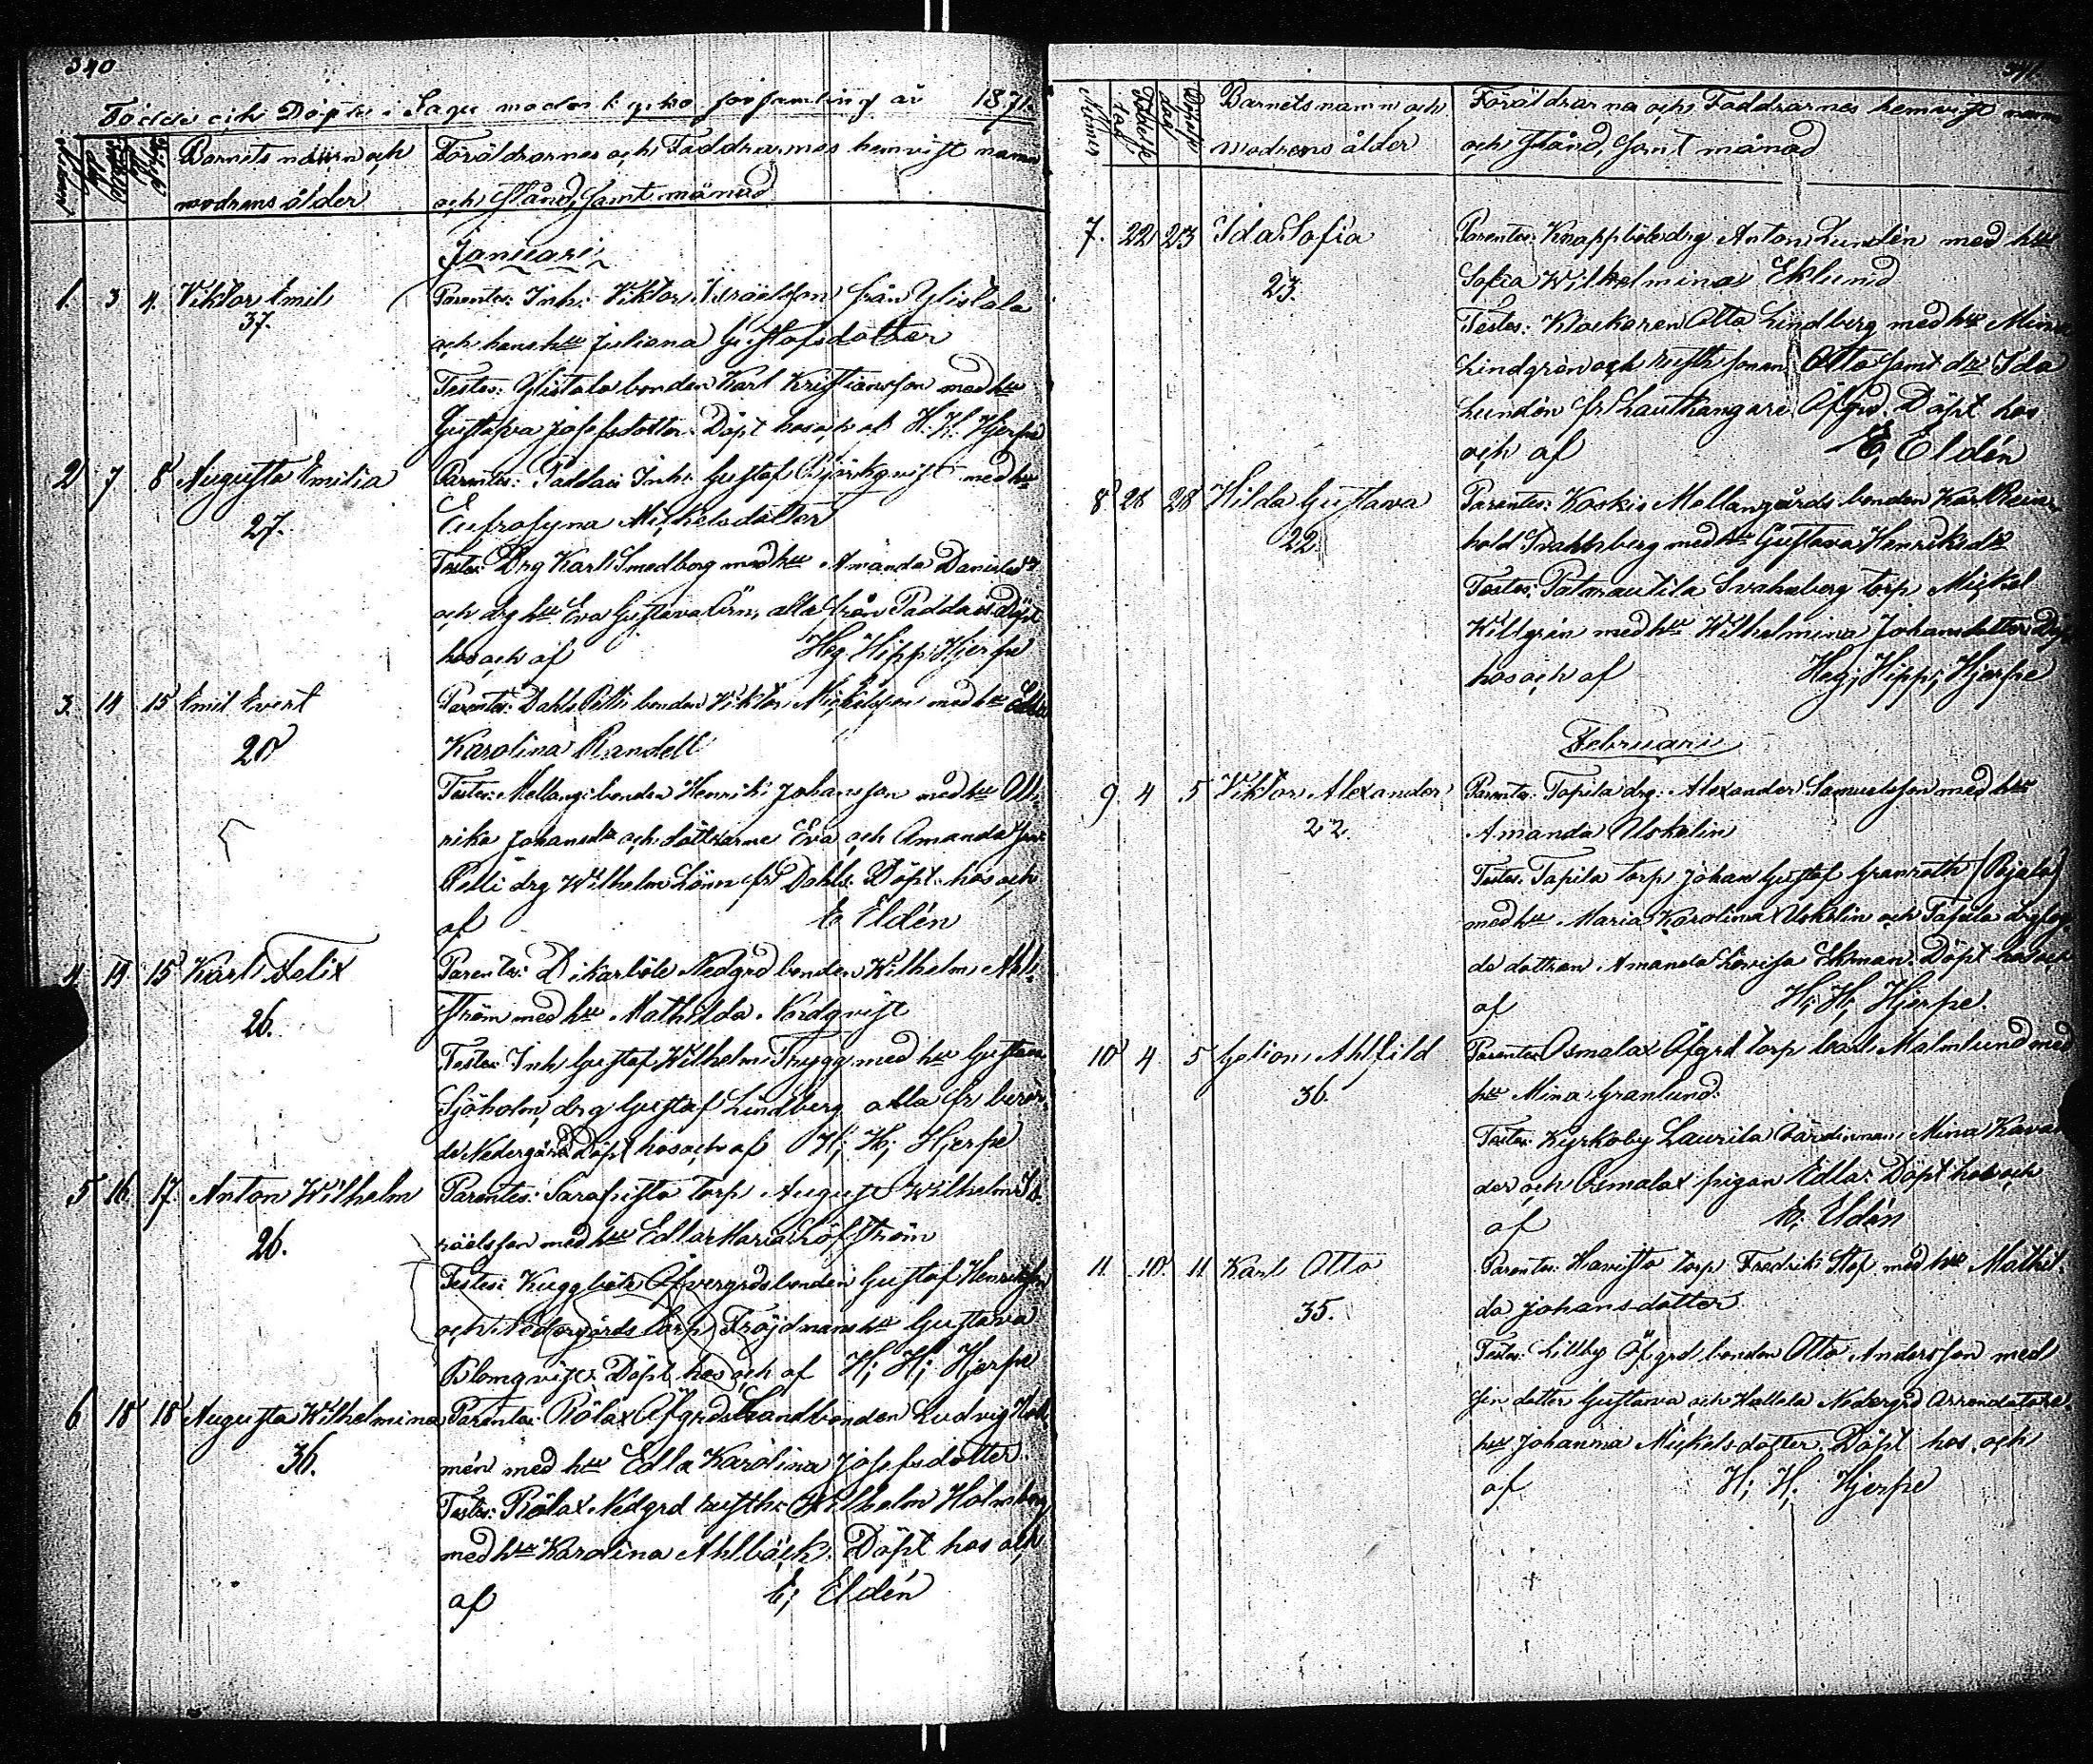 340
Födde och Döpte i Sagu moder kyrko församling år 1871
Numer
Barnets namn och
modrens ålder
Föräldrarnes och Faddrarnes hemvist namn
och stånd, samt månad
Januari
1. 3 4. Viktor Emil
37.
Parentes: Inh: Viktor Israelsson från Ylistalo
och hans hu Juliana Gustafsdotter
Testes: Ylistalo bonden Karl Kristiansson med hu
Gustafva Josefsdotter. Döpt hos och af H. H. Hjerpe
2 7 8 Augusta Emilia
27.
Parentes: Paddais Inh: Gustaf Björkqvist med hu
Eufrosyna Mickelsdotter
Testes: Drg Karl Smedberg med hu Amanda Danielsdr
och drg hu Eva Gustava Örn, alla från Paddais Döpt
hos och af Heg Hipp: Hjerpe
3. 14 15 Emil Evert
20
Parentes: Dahls Pelli bonden Viktor Mickelsson med hu Edla
Karolina Randell
Testes: Mellang: bonden Henrik Johansson med hu Ull-
rika Johansdr och döttrarne Eva och Amanda samt
Pelli drg Wilhelm Lönn fr Dahls. Döpt hos och
af E Eldén
4 14 15 Karl Felix
26.
Parentes: Dikarböle Nedgrd bonden Wilhelm Ahl-
ström med hu Mathilda Nordqvist
Testes: Inh Gustaf Wilhelm Trygg med hu Gustava
Sjöholm, drg Gustaf Lindberg alla fr berör-
da Nedergård Döpt hos och af H; H; Hjerpe
5 16. 17. Anton Wilhelm
26.
Parentes: Sarapisto torp August Wilhelm Is-
raelsson med hu Edla Maria Löfström
Testes: Kuggböle Öfvergrds bonden Gustaf Henriksson
och Nedergårds torp Fröjdmans hu Gustava
Blomqvist. Döpt hos och af H; H; Hjerpe
6 18 18 Augusta Wilhelmina
36.
Parentes: Rölax Öfgrds Landbonden Ludvig Hol-
mén med hu Edla Karolina Josefsdotter
Testes: Rölax Nedgrd Wilhelm Holmberg
med hu Karolina Ahlbäck. Döpt hos och
af E; Eldén
341.
Numer
Barnets namn och
modrens ålder
Föräldrarna och Faddrarnes hemvist namn
och stånd, samt månad
7. 22 23 Ida Sofia
23.
Parentes: Knappböle drg Anton Lundén med hu
Sofia Wilhelmina Eklund
Testes: Klockaren Otto Lindberg med hu Mina
Lindgrén och sonen Otto samt dr Ida
Lundén fr Lautkangare Öfgrd. Döpt hos
och af E, Eldén
8 26 28 Hilda Gustava
22
Parentes: Koskis Mellangårds bonden Karl Rein-
hold Svahnberg med hu Gustava Henriksdr
Testes: Patmautila Svahnberg torp Mickel
Killgrén med hu Wilhelmina Johansdotter Döpt
hos och af Heg; Hipp; Hjerpe
Februari
9 4 5 Viktor Alexander
22.
Parentes: Tapila drg: Alexander Samuelsson med hu
Amanda Uskelin
Testes: Tapila torp Johan Gustaf Granroth (Pojalo)
med hu Maria Karolina Uskelin och Tapila
dottren Amanda Lovisa Ekman. Döpt hos och
af H; H; Hjerpe.
10 4 5 Gelion Ahlfild
36.
Parentes Osmalax Öfgrd torp Karl Malmlund med
hu Mina Granlund.
Testes: Kyrkoby Laurila Mina Kavan-
der och Osmalax pigan Edla: Döpt hos och
af E; Eldén
11. 10. 11 Karl Otto
35.
Parentes: Havisto torp Fredrik Stef med hu Mathil-
da Johansdotter
Testes: Lillby Öfgrd bonden Otto Andersson med
sin dotter Gustava och Hallela Nedergrd Arrendatorn
hu Johanna Mickelsdotter. Döpt hos och
af H; H; Hjerpe